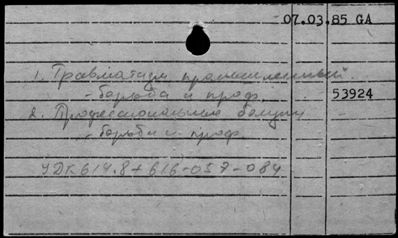 07.03.85 GA
1. Травматизм промышленный
- борьба и проф.
53924
2. Профессиональные болезни
- борьба и проф.
УДК 614.8+616-057-084